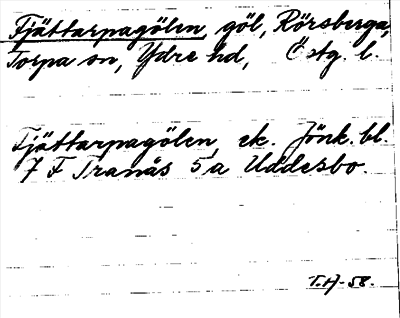 Tjättarpagölen, göl, Rörsberga,
Torpa sn, Ydre hd, Östg. l.
Tjättarpagölen, ek. Jönk. bl.
7 F Tranås 5a Uddesbo.
T.H-58.